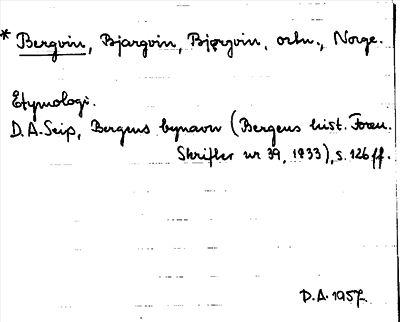 * Bergvin, Bjargvin, Bjørgvin, ortn., Norge.
Etymologi.
D.A. Seip, Bergens bynavn (Bergens hist. Foren.
Skrifter nr 39, 1933), s. 126 ff.
D.A. 1957.